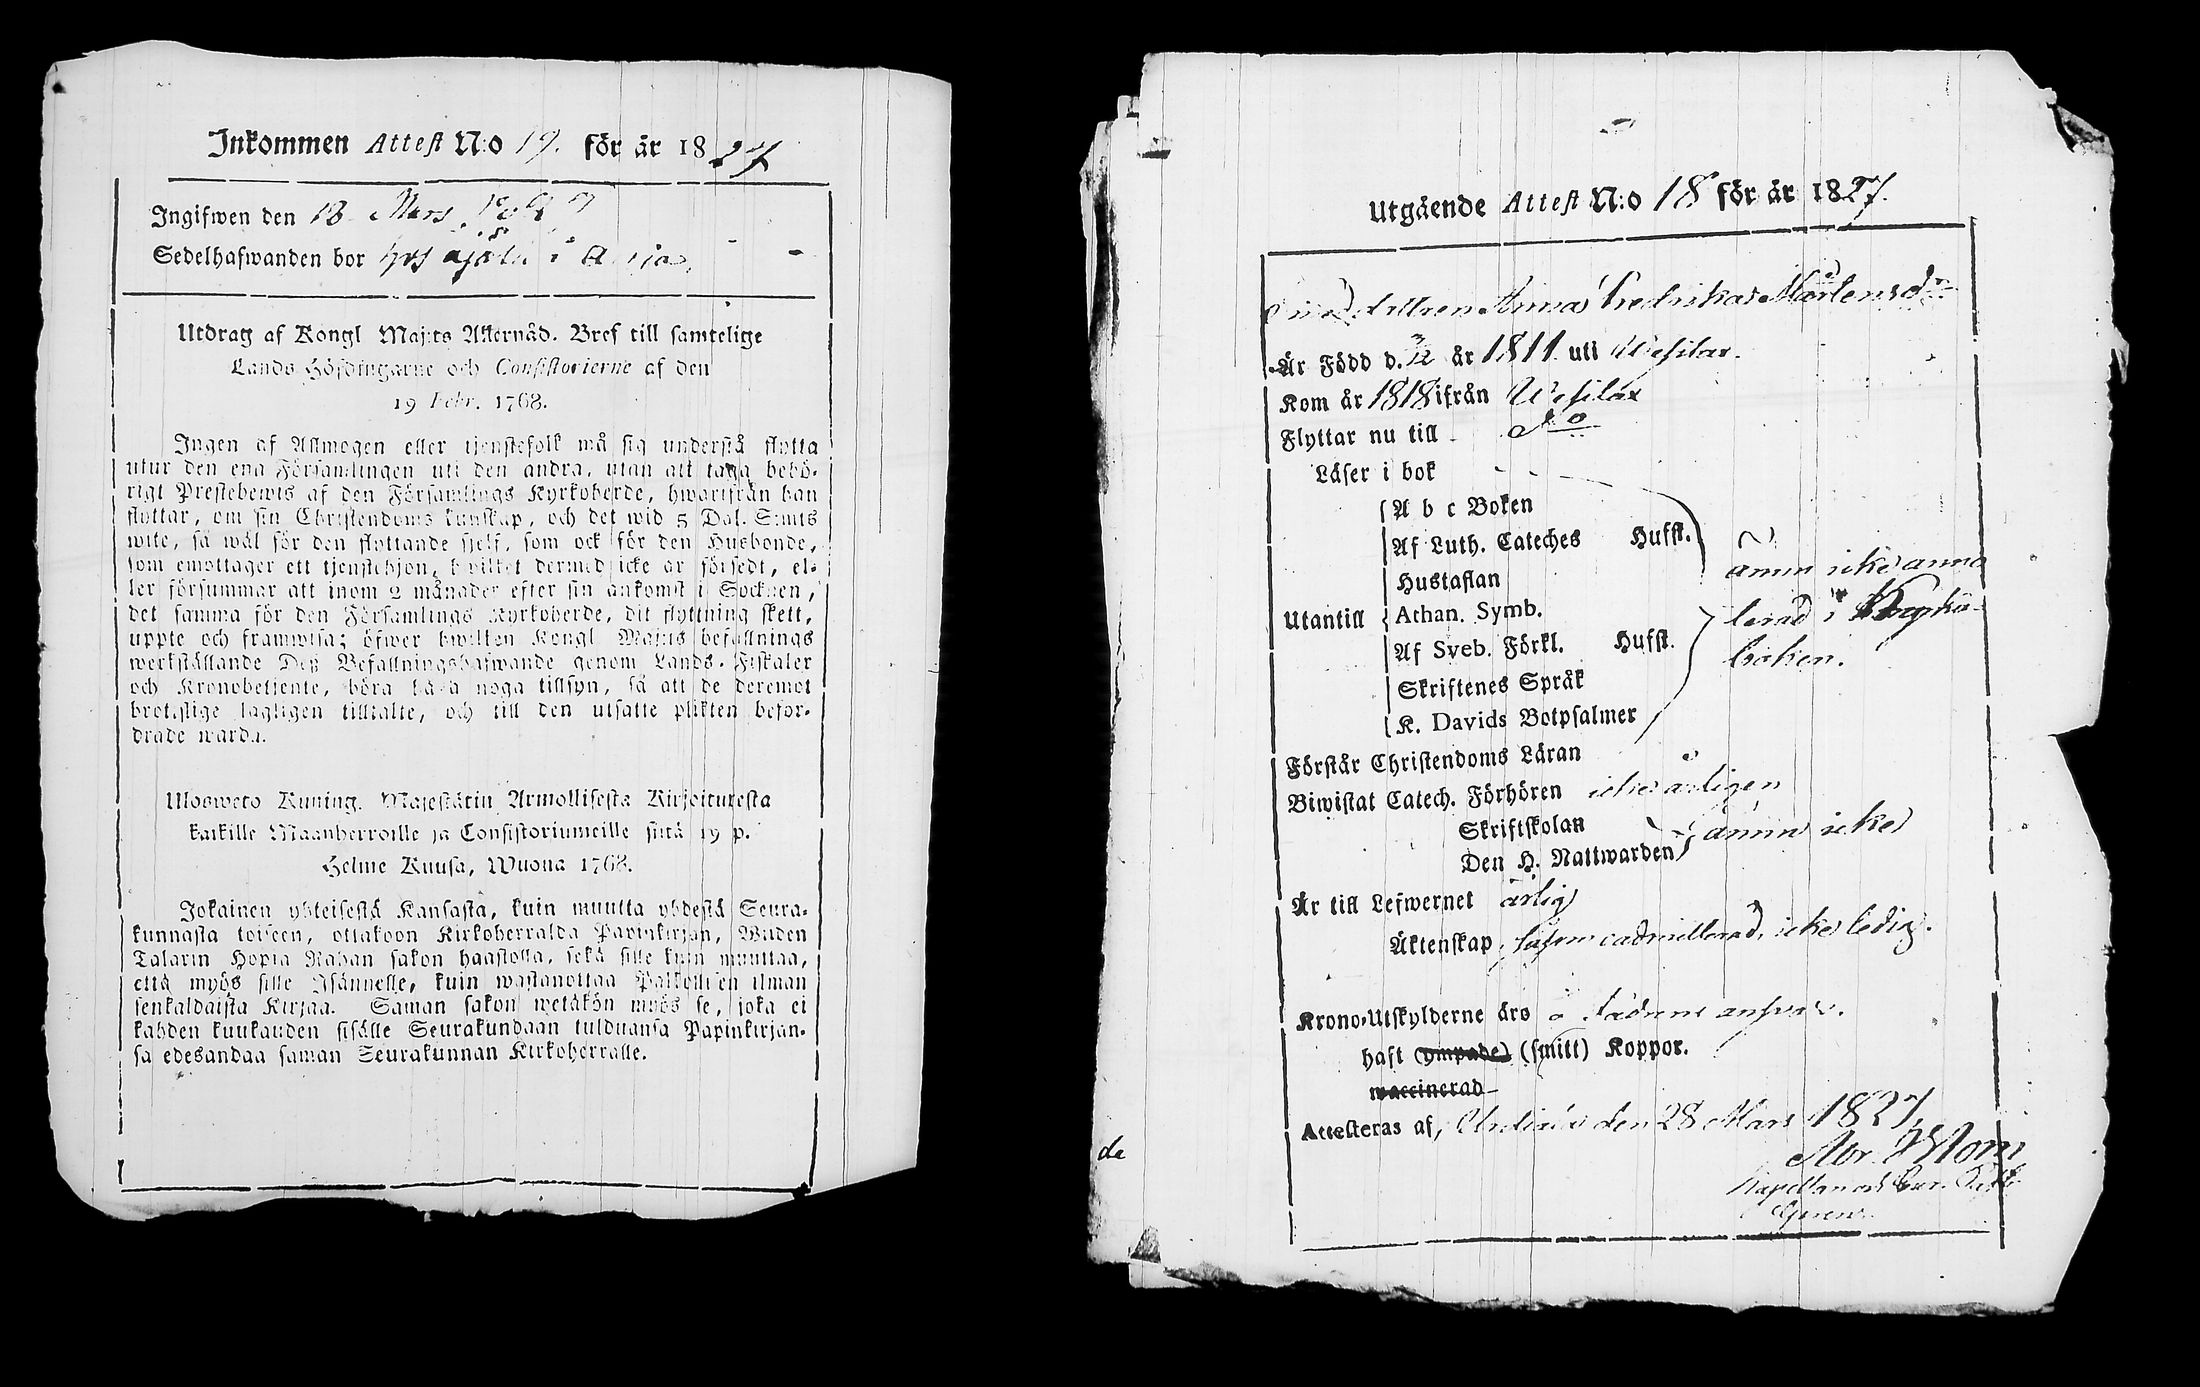 Inkommen Attest N:o 19. för år 1827
Ingifwen den 18 Mars
Sedelhafwanden bor hos i
Utdrag af Kongl Maj:ts Allernåd. Bref till samtelige
Lands Höfdingarne och Consistorierne af den
19 Febr. 1768.
Ingen af Allmogen eller tjenstefolk må sig understå flytta
utur den ena Församlingen uti den andra, utan att taga behö-
rigt Prestebewis af den Församlings Kyrkoherde, hwarifrån han
flyttar, om sin Christendoms kunskap, och det wid 5 Dal. S:mts
wite, så wäl för den flyttande sjelf, som ock för den Husbonde,
som emottager ett tjenstehjon, hwilket dermed icke är försedt, el-
ler försummar att inom 2 månader efter sin ankomst i Socknen,
det samma för den Församlings Kyrkoherde, dit flyttning skett,
uppte och framwisa; öfwer hwilken Kongl Maj:ts befallnings
werkställande Deß Befallningshafwande genom Lands-Fiskaler
och Kronobetjente, böra hafwa noga tillsyn, så att de deremot
brotslige lagligen tilltalte, och till den utsatte plikten befor-
drade warda.
Ulosweto Kuning. Majestätin Armollisesta Kirjoituresta
kaikille Maanherroille ja Consistoriumeille siitä 19 p.
Helme Kuusa, Wuona 1768.
Jokainen yhteisestä Kansasta, kuin muutta yhdestä Seura-
kunnasta toiseen, ottakoon Kirkoherralda Papinkirjan, Wiiden
Talarin Hopia Rahan sakon haastolla, sekä sille kuin muuttaa,
että myös sille Isännelle, kuin wastanottaa Palkollisen ilman
senkaldaista Kirjaa. Saman sakon wetäkön myös se, joka ei
kahden kuukauden sisälle Seurakundaan tulduansa Papinkirjan-
sa edesandaa saman Seurakunnan Kirkoherralle.
Utgående Attest N:o 18 för år 1827.
Anna Fredrika Mårtensdr
Är Född d. år 1811 uti Wesilax.
Kom år 1818 ifrån Wesilax
Flyttar nu till do
Läser i bok
A b c Boken
Af Luth. Cateches Husfl.
Hustaflan
Utantill Athan. Symb.
Af Sveb. Förkl. Husfl.
Skriftenes Språk
K. Davids Botpsalmer
ännu icke anno
terad i Kyrko-
boken.
Förstår Christendoms Läran
Biwistat Catech. Förhören icke årligen
Skriftskolan
Den H. Nattwarden ännu icke
Är till Lefwernet ärlig
Äktenskap icke ledig.
Krono-Utskylderne äro å answar.
haft (ympade) (smitt) Koppor.
waccinerad
Attesteras af, den 28 Mars 1827,
Abr.
Kapellan
da